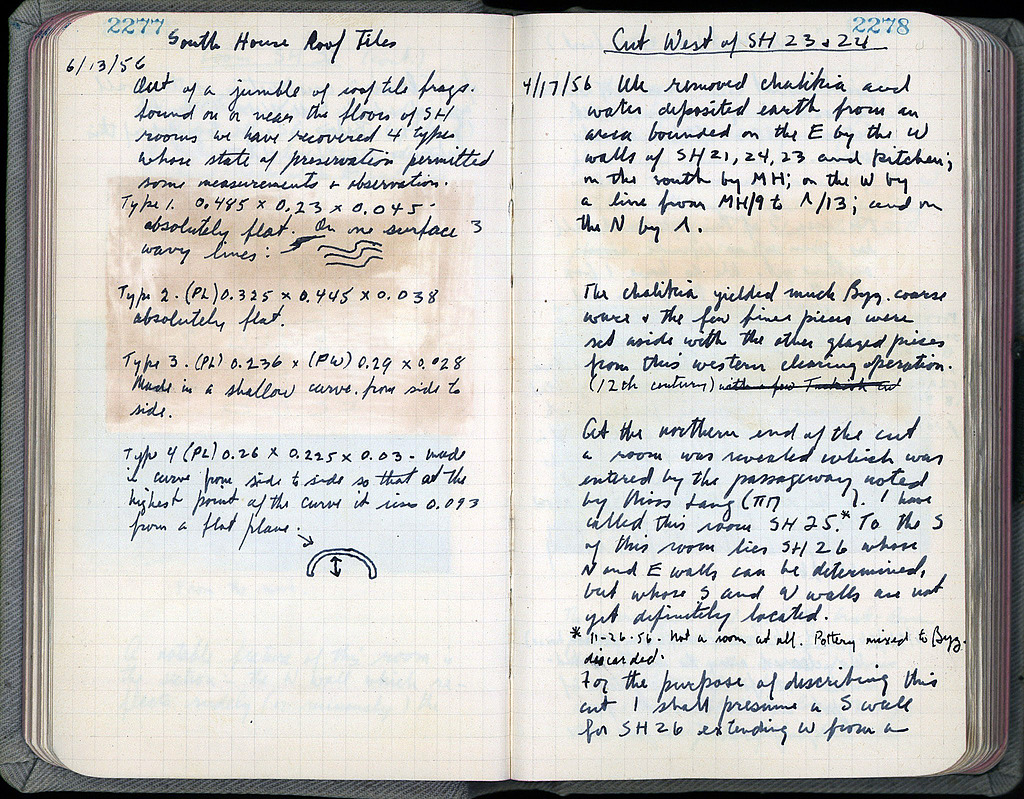 2277
South House Roof Tiles
6/13/56
Out of a jumble of roof tile frags.
found on or near the floors of SH
rooms we have recovered 4 types
whose state of preservation permitted
some measurements & observation.
Type 1. 0.485 x 0.23 x 0.045
absolutely flat. On one surface 3
wavy lines:
Type 2. (PL) 0.325 x 0.445 x 0.038
absolutely flat.
Type 3. (PL) 0.236 x (PW) 0.29 x 0.028
Made in a shallow curve from side to
side.
Type 4 (PL) 0.26 x 0.225 x 0.03 - made
in curve from side to side so that at the
highest point of the curve it rises 0.093
from a flat plane.
2278
Cut West of SH 23 & 24
4/17/56 We removed chalikia and
water deposited earth from an
area bounded on the E by the W
walls of SH 21, 24, 23 and kitchen;
on the south by MH; on the W by
a line from MH/9 to Λ/13; and on
the N by Λ.
The chalikia yielded much Byz. coarse
ware & the few finer pieces were
set aside with the other glazed pieces
from this western clearing operation.
(12th century) with a few Turkish
At the northern end of the cut
a room was revealed which was
entered by the passageway noted
by Miss Lang (ΠΠ ). I have
called this room SH 25.* To the S
of this room lies SH 26 whose
N and E walls can be determined,
but whose S and W walls are not
yet definitely located.
* 11-26-56. Not a room at all. Pottery mixed to Byz.
discarded.
For the purpose of describing this
cut I shall presume a S wall
for SH 26 extending W from a